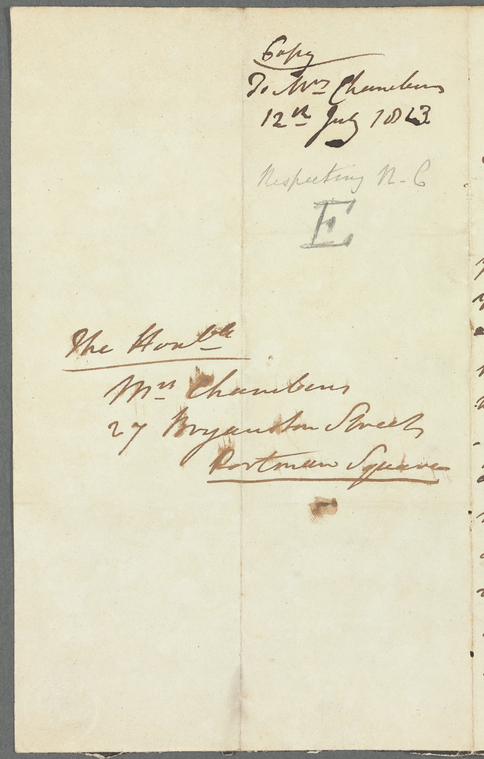 Copy
To Mrs Chambers
12th July 1813
Respecting R. C
E
The Honble
Mrs Chambers
27 Bryanston Street
Portman Square